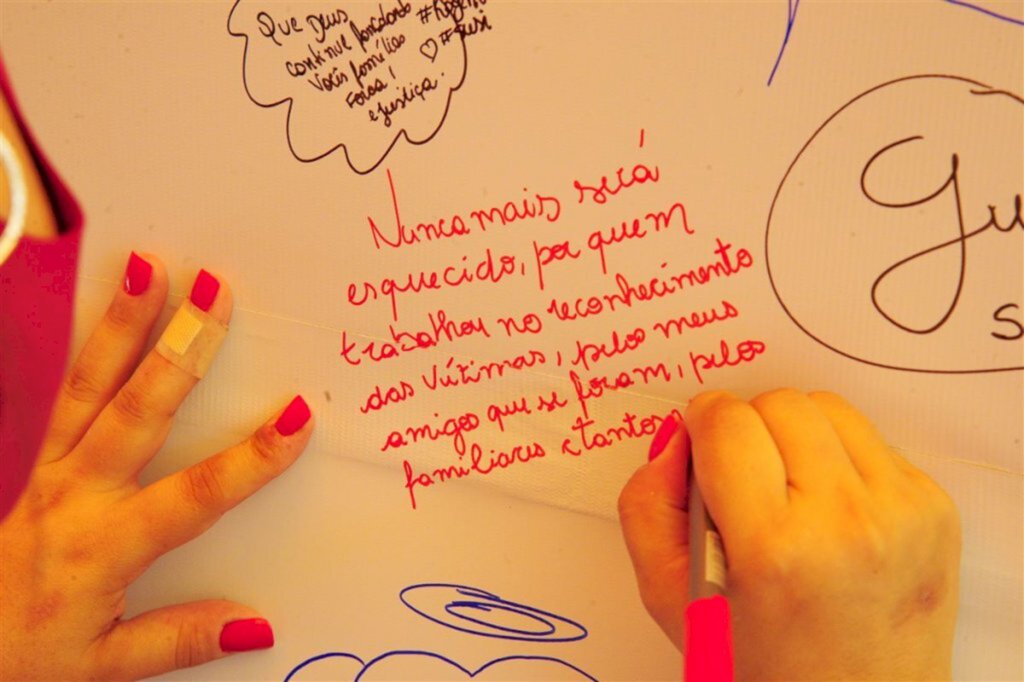 Que Deus
continue fornecendo
Vocês famílias
Força!
e justiça.
Nunca mais será
esquecido, por quem
trabalhou no reconhecimento
das Vítimas, pelos meus
amigos que se foram, pelos
familiares e tantos
Gu
S